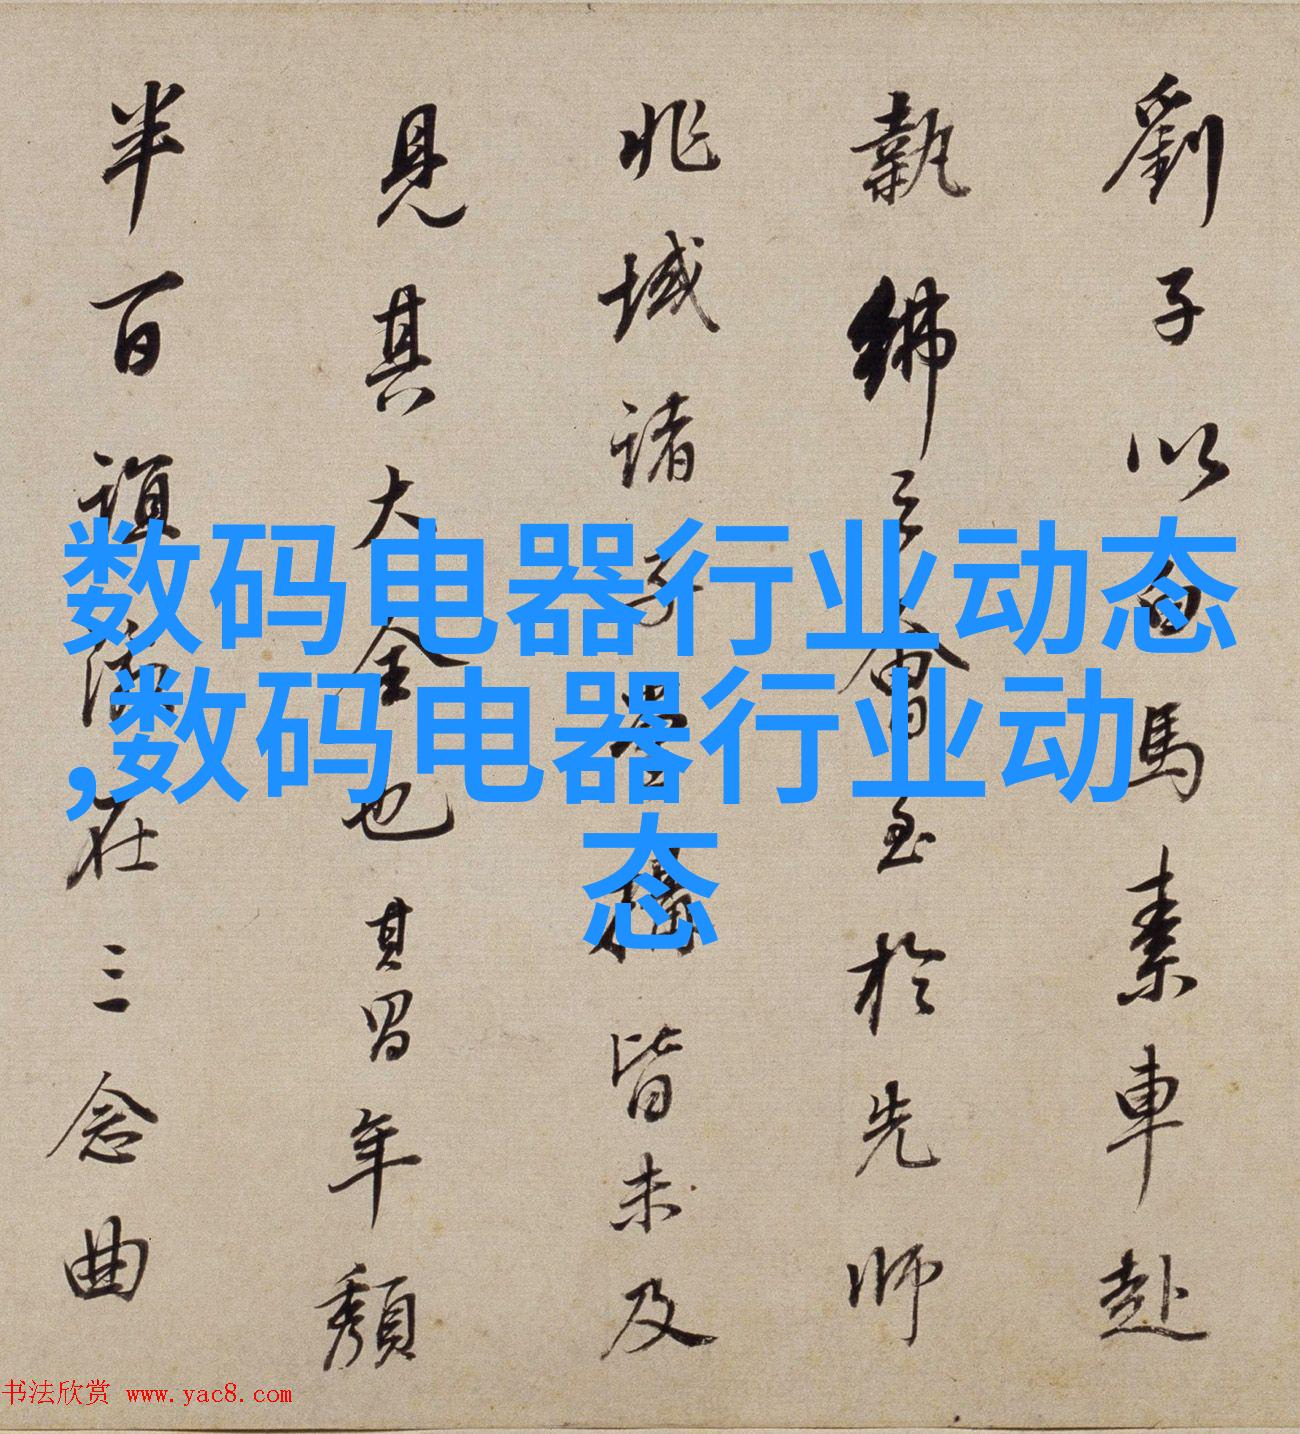 劉子以白馬素車赴
執紼之會至於先師
兆域諸子學構皆未及
見其大全也其習年頹
半百誼海在三念曲
数码电器行业动态
,数码电器行业动
态
书法欣赏 www.yac8.com